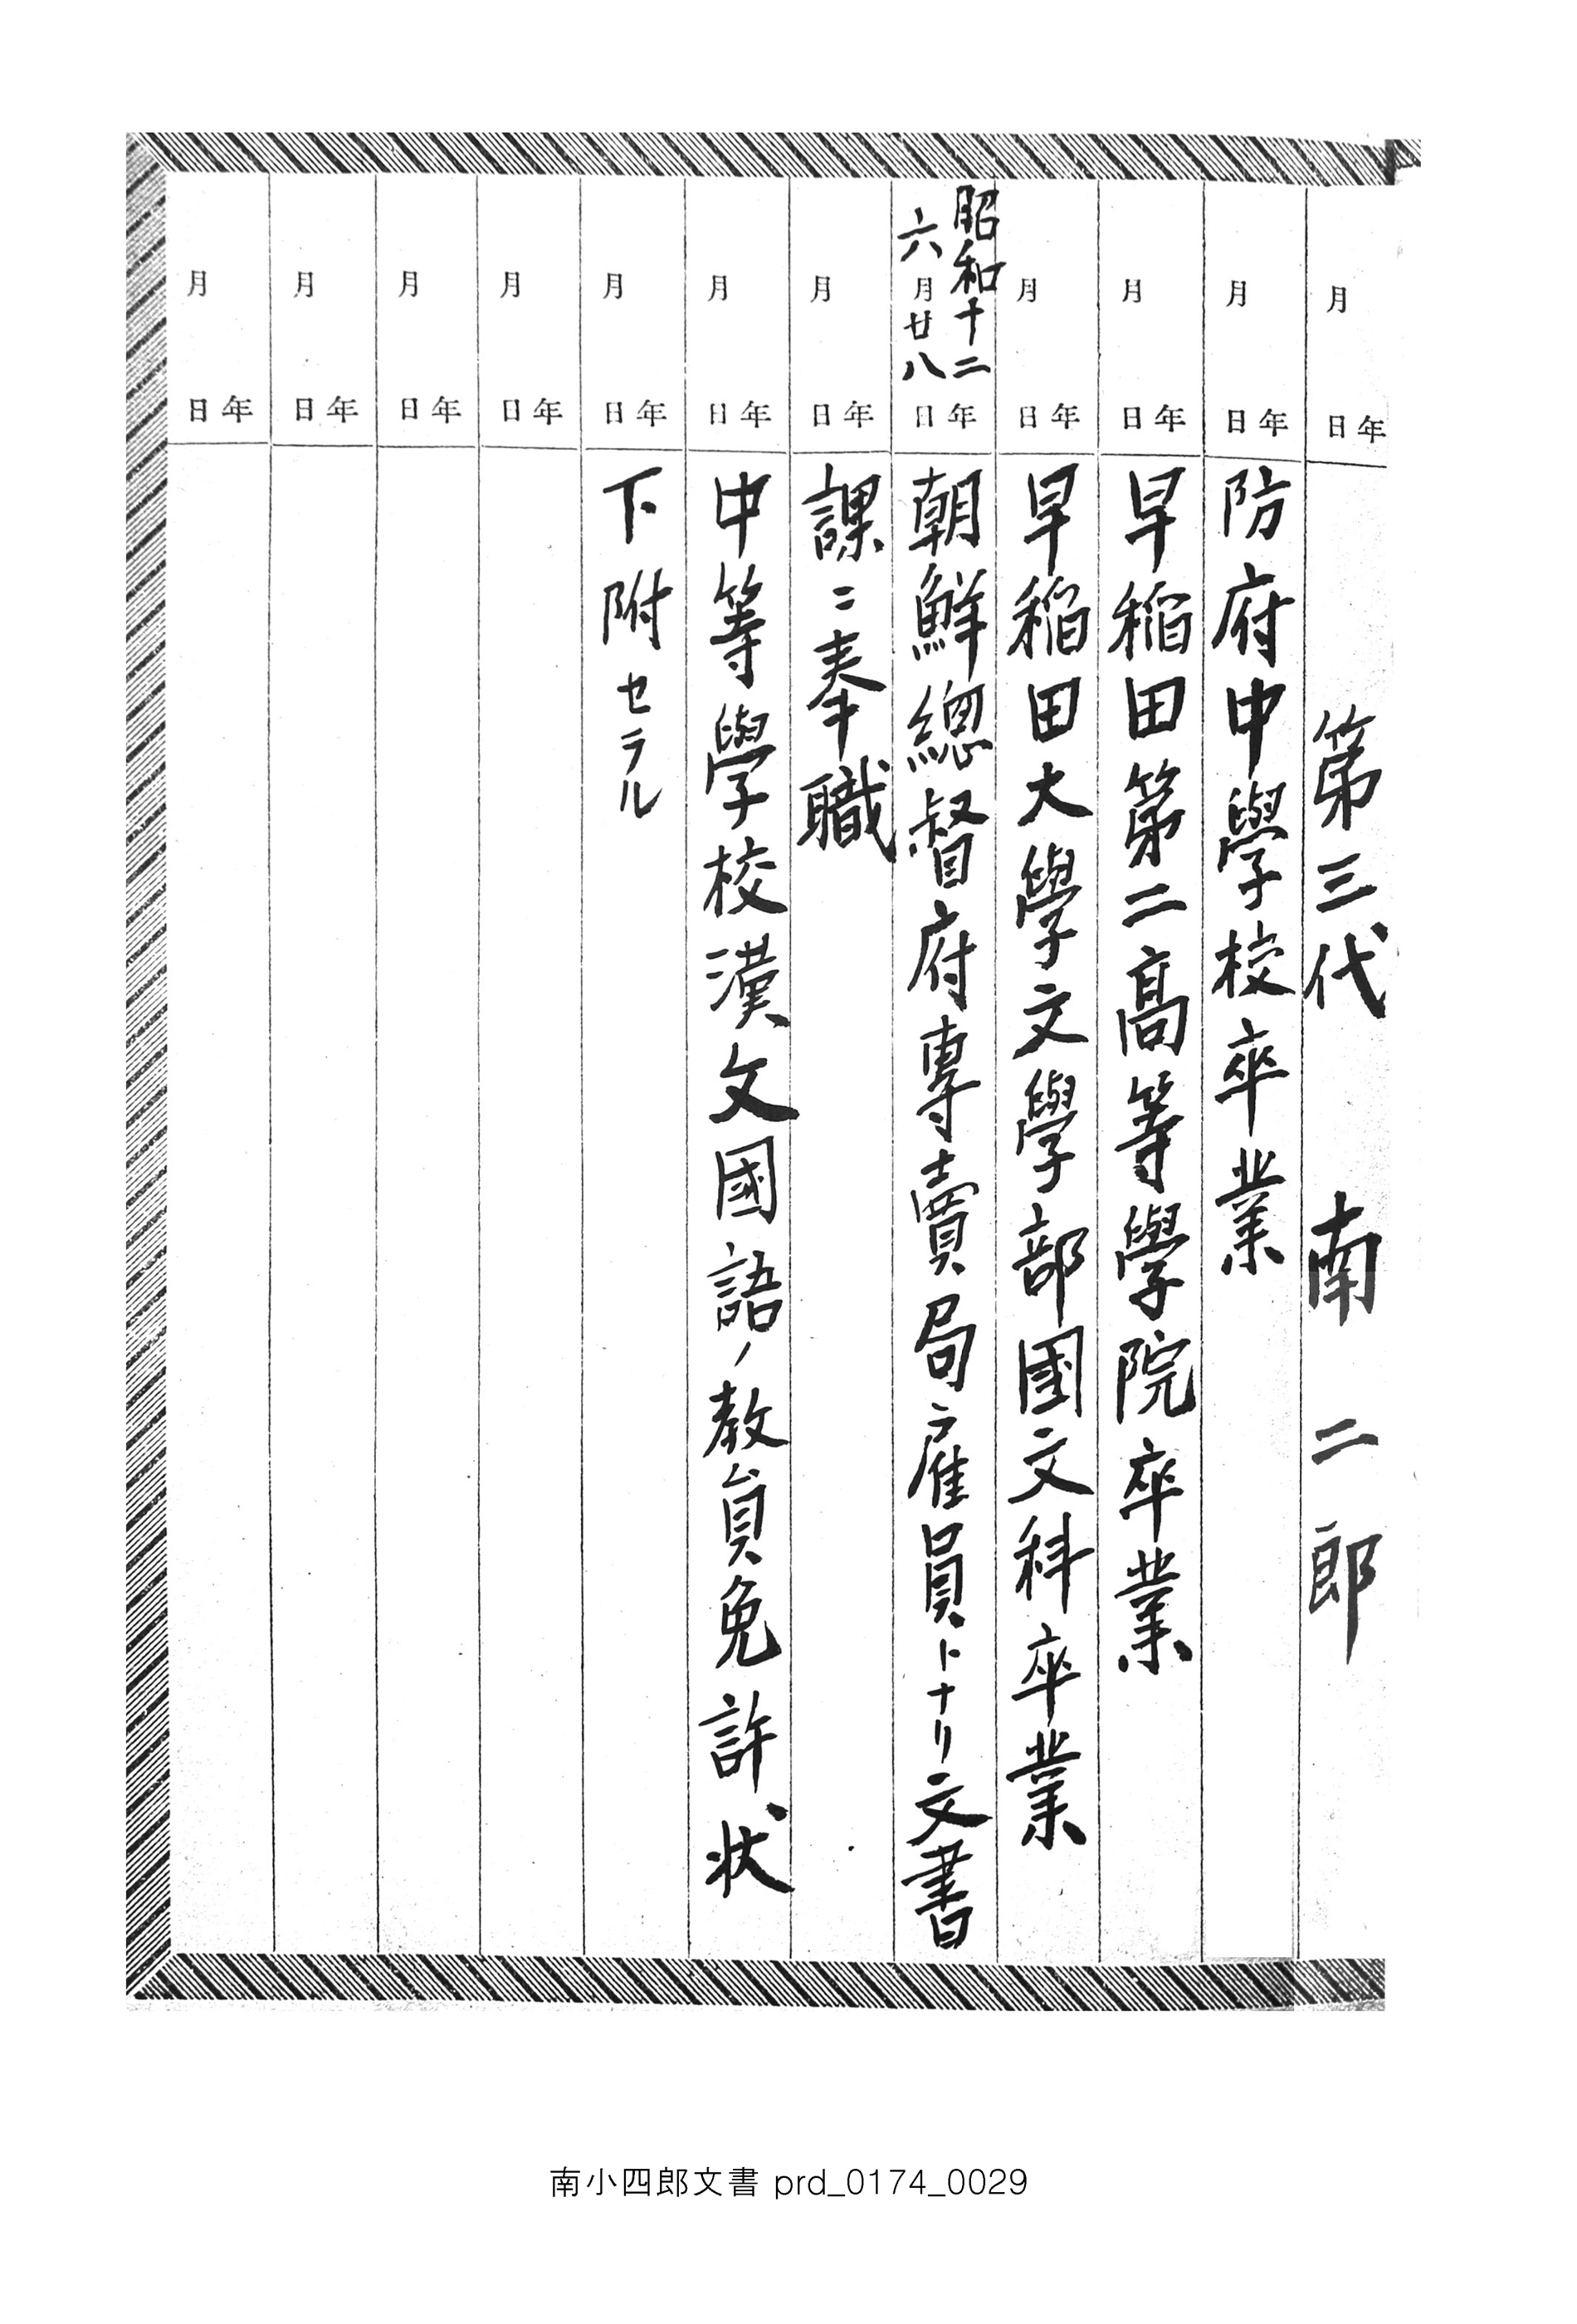 年
月
日
第三代 南二郎
年
月
日
防府中學校卒業
年
月
日
早稲田第二高等學院卒業
年
月
日
早稲田大學文學部國文科卒業
昭和十二年
六月廿八日
朝鮮總督府專賣局雇員トナリ文書
年
月
日
課ニ奉職
年
月
日
中等學校漢文國語ノ教員免許状
年
月
日
下附セラル
年
月
日
年
月
日
年
月
日
年
月
日
南小四郎文書 prd_0174_0029